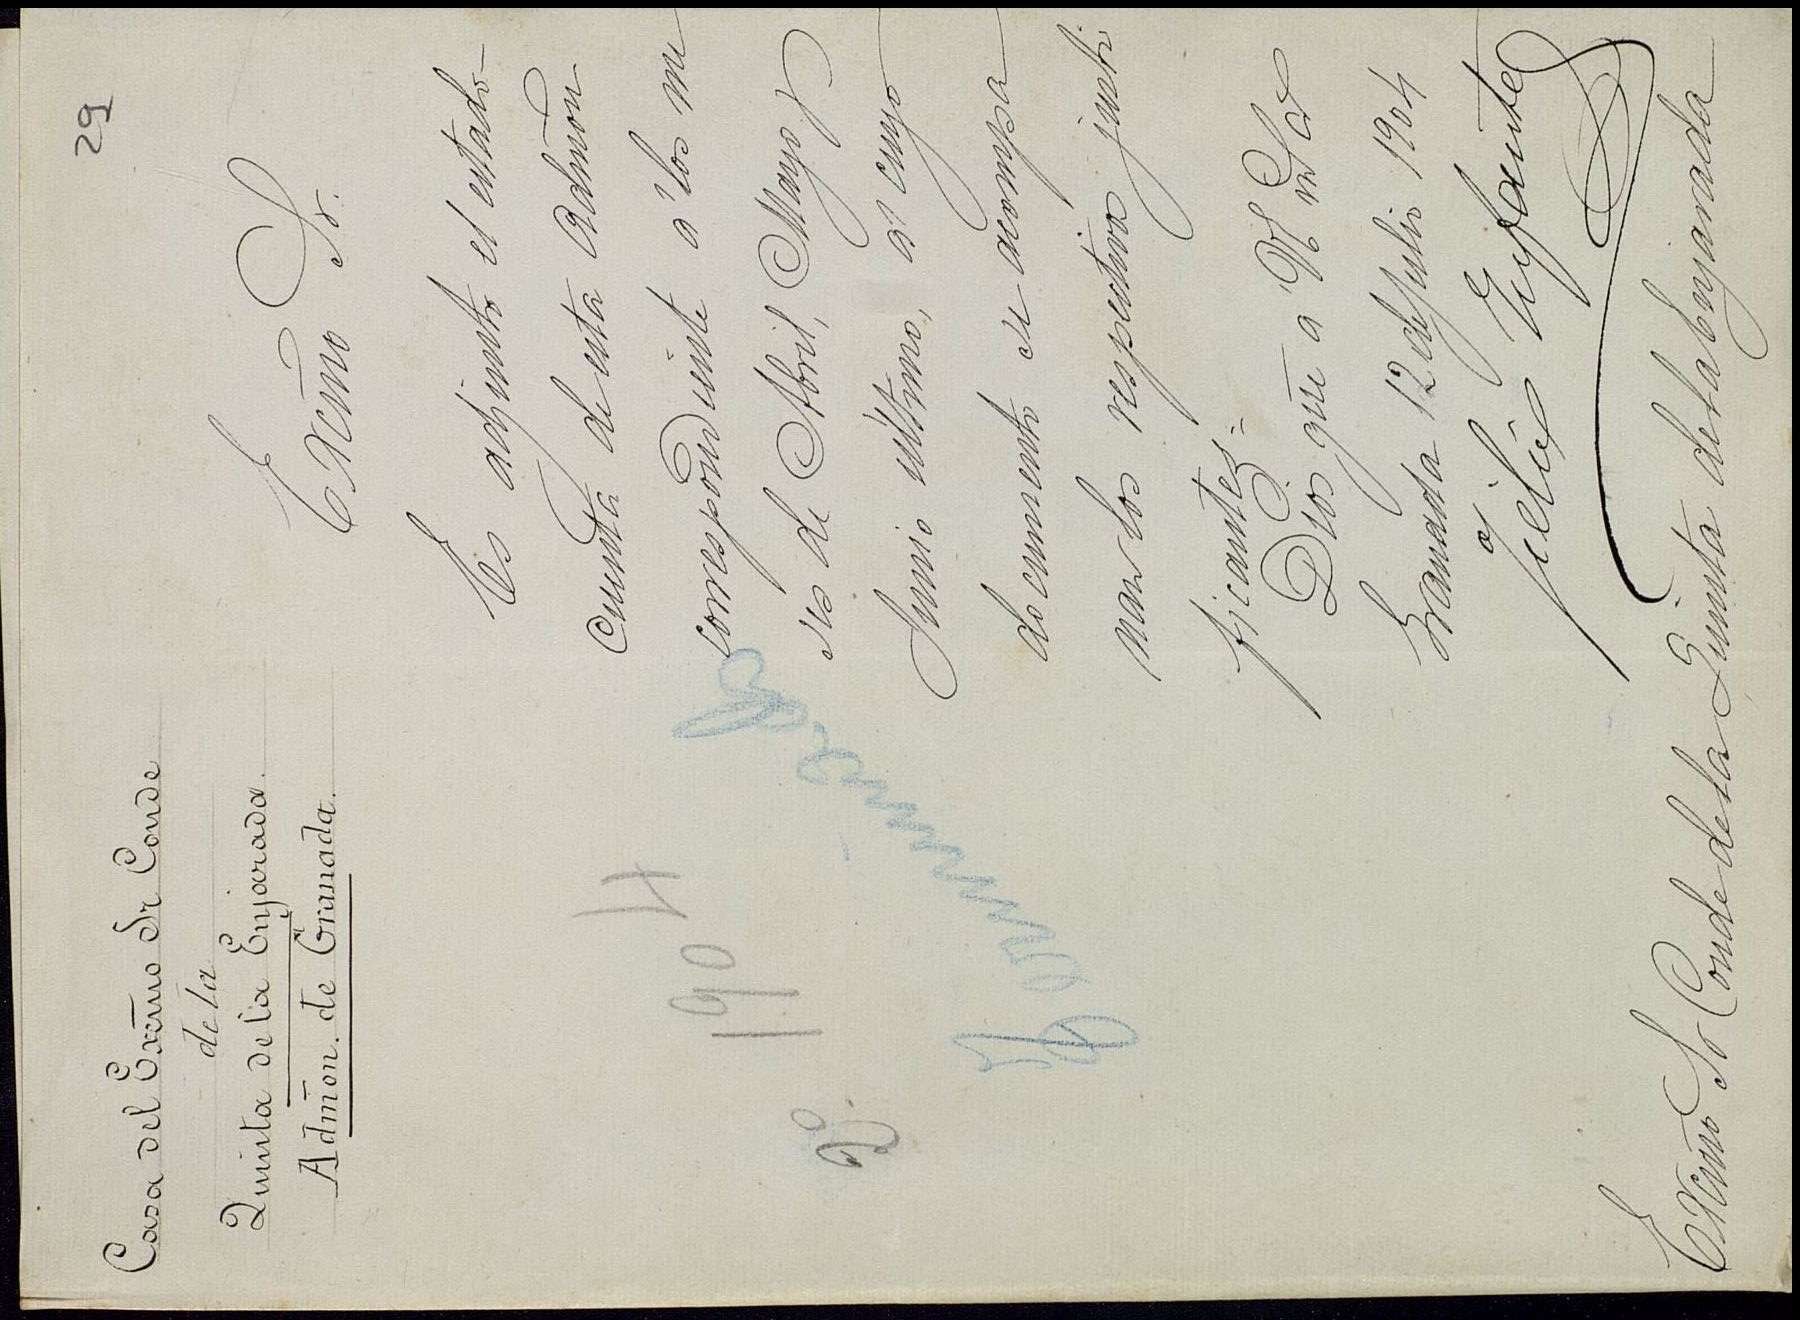 29
Casa del Excmo Sr Conde
de la
Quinta de la Enjarada.
Admon. de Granada.
Excmo Sr.
Es adjunto el estado
cuenta de esta Admon
correspondiente a los me
ses de Abril, Mayo y
Junio ultimo, a cuyo
documento se acompa
nan los respectivos justi
ficantes=
Dios gue a V E
Granada 12 de Julio 1904
1904
2º
Excmo Sr Conde de la Quinta de la Enjarada